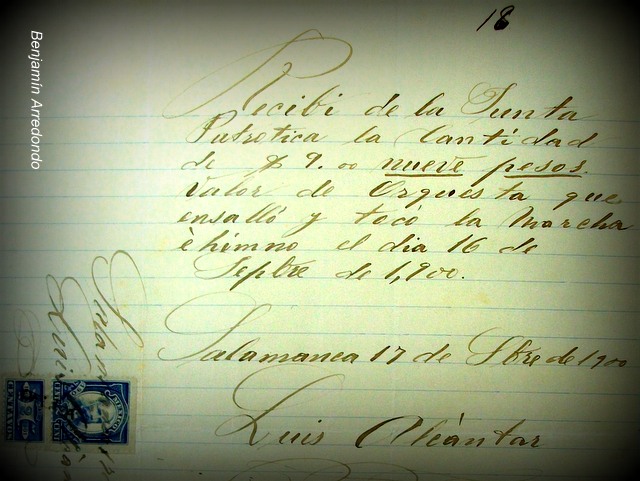 18
Benjamín Arredondo
Recibi de la Junta
Patrotica la Cantidad
de $ 9.00 nueve pesos
valor de Orquesta que
ensalló y tocó la Marcha
è himno el dia 16 de
Septre de 1,900.
Salamanca 17 de Sbre de 1900
Luis Alcántar